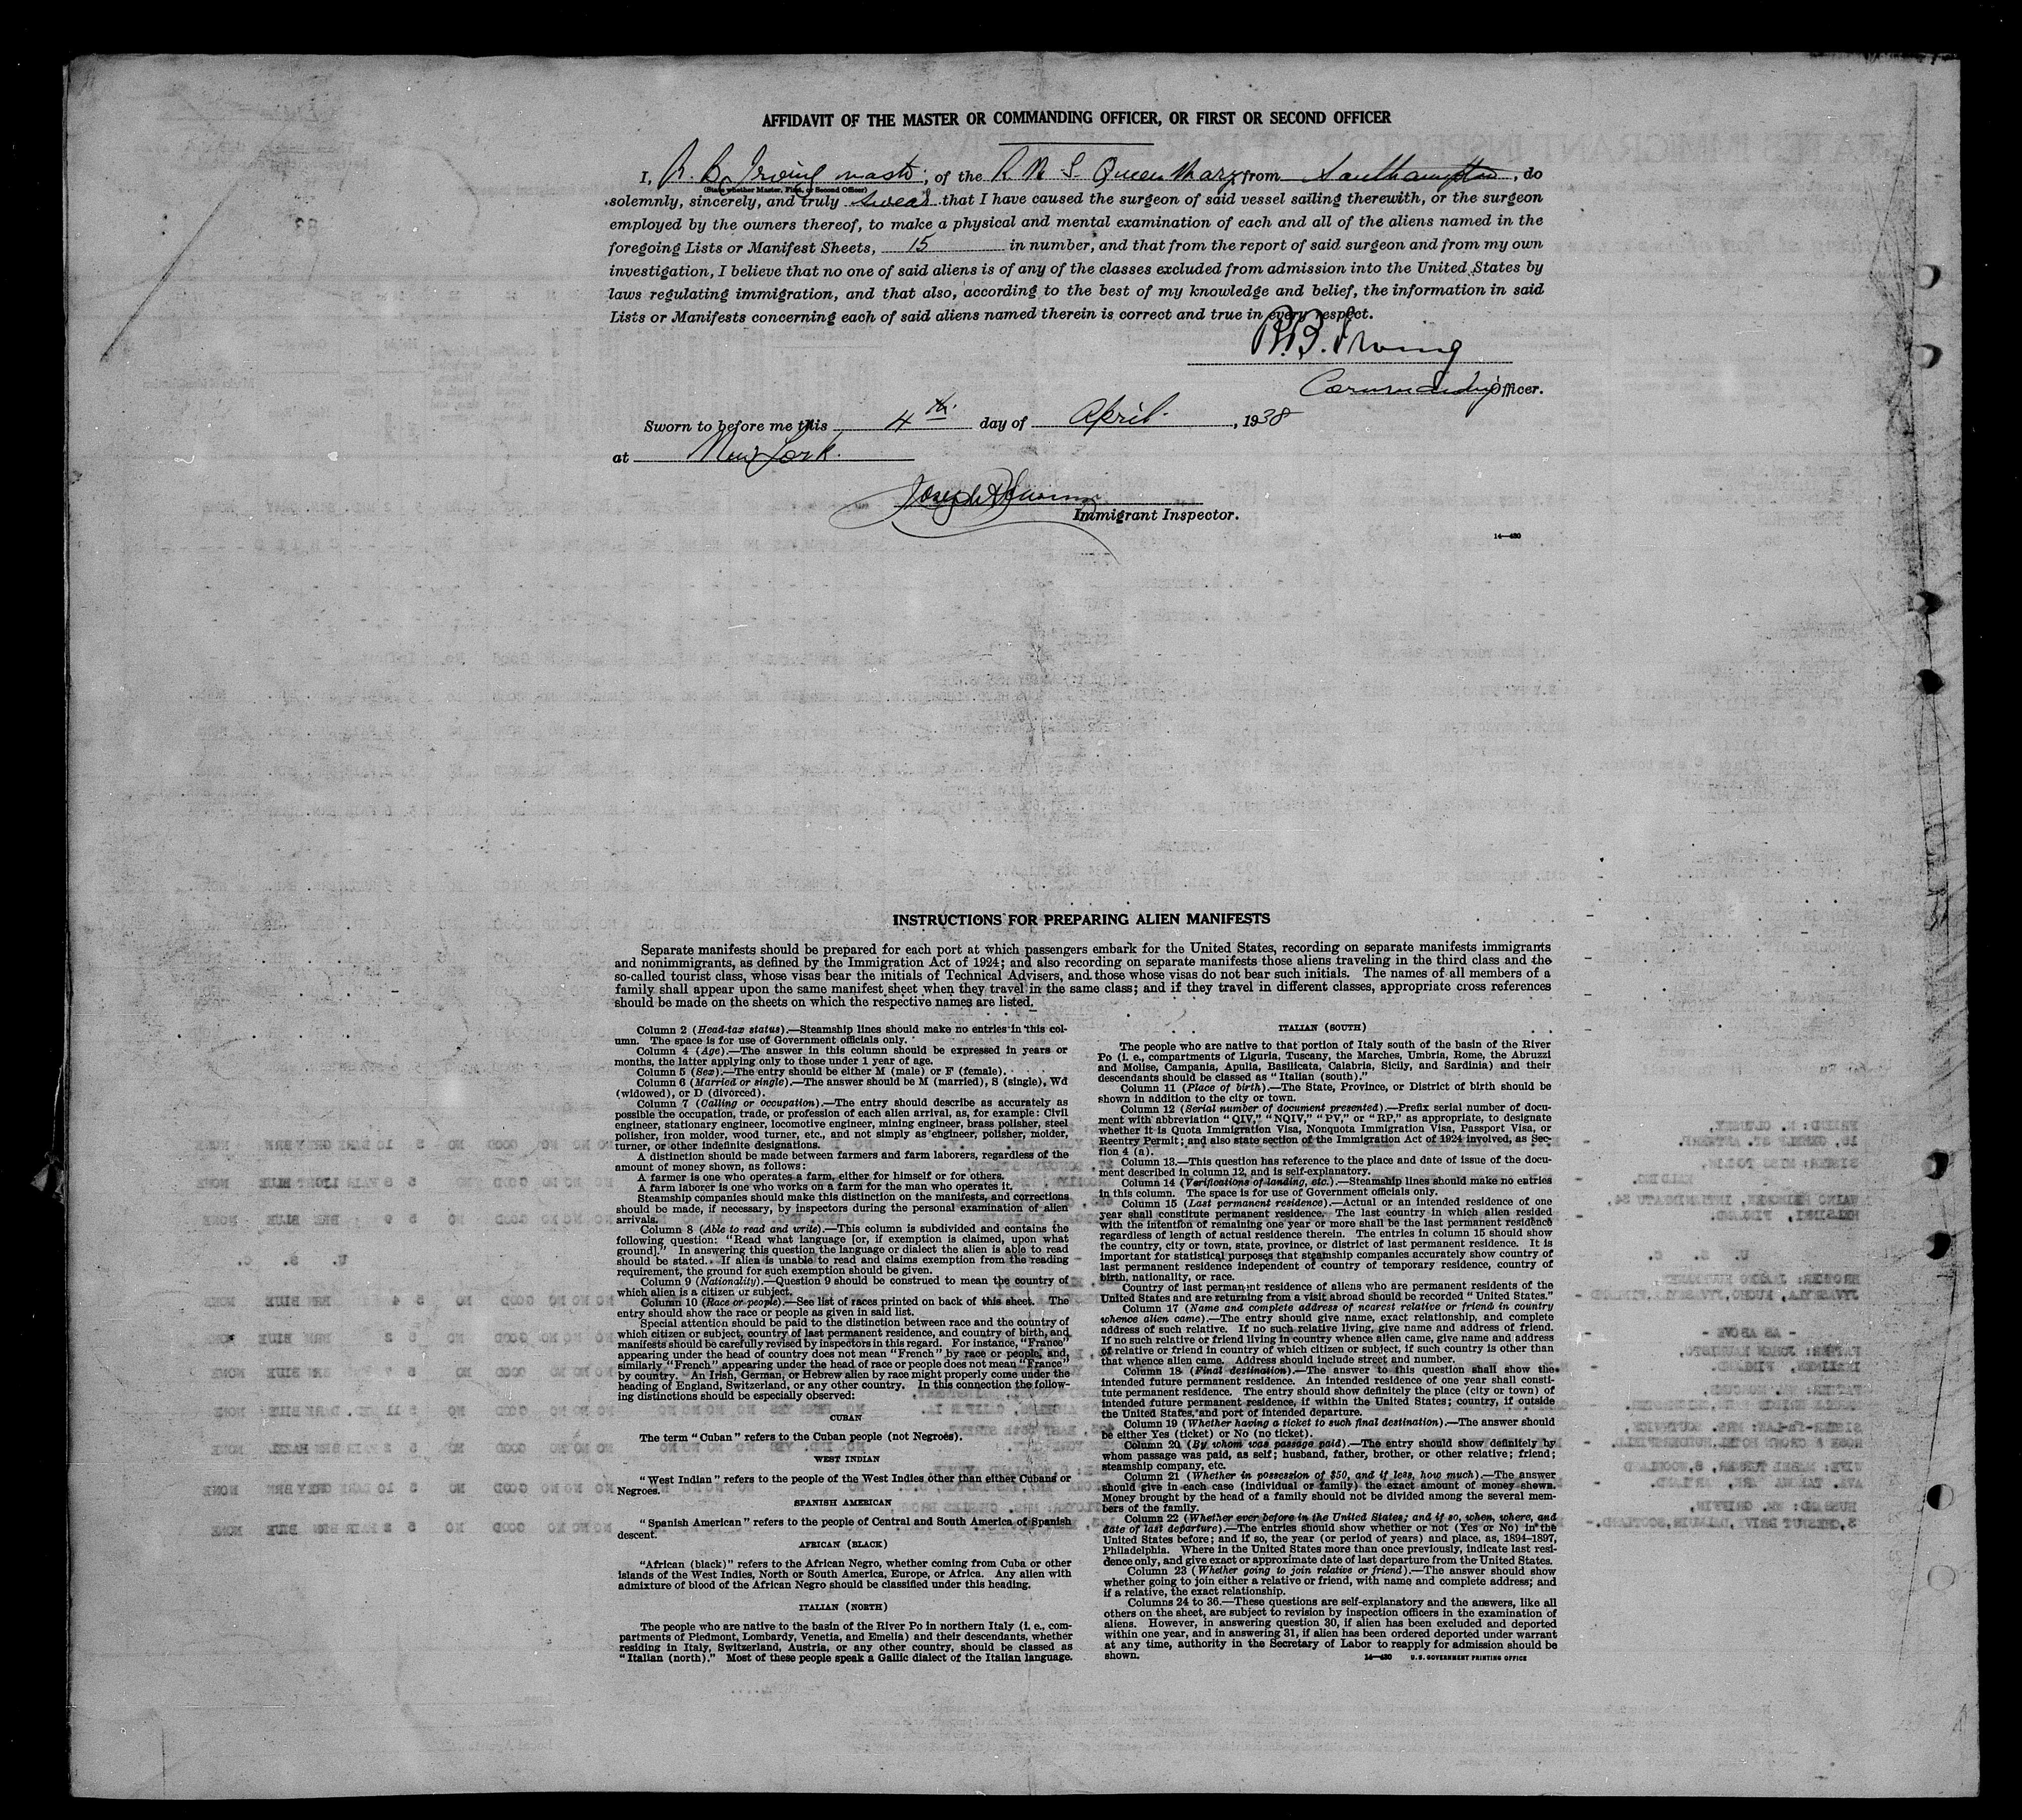 AFFIDAVIT OF THE MASTER OR COMMANDING OFFICER, OR FIRST OR SECOND OFFICER
I, R. B. Irving master, of the R M S Queen Mary, from Southampton, do
(State whether Master, First, or Second Officer)
solemnly, sincerely, and truly swear that I have caused the surgeon of said vessel sailing therewith, or the surgeon
employed by the owners thereof, to make a physical and mental examination of each and all of the aliens named in the
foregoing Lists or Manifest Sheets, 15 in number, and that from the report of said surgeon and from my own
investigation, I believe that no one of said aliens is of any of the classes excluded from admission into the United States by
laws regulating immigration, and that also, according to the best of my knowledge and belief, the information in said
Lists or Manifests concerning each of said aliens named therein is correct and true in every respect.
R.B. Irving
Commanding Officer.
Sworn to before me this 4th day of April, 1938
at New York.
Joseph
Immigrant Inspector.
14—430
INSTRUCTIONS FOR PREPARING ALIEN MANIFESTS
Separate manifests should be prepared for each port at which passengers embark for the United States, recording on separate manifests immigrants
and nonimmigrants, as defined by the Immigration Act of 1924; and also recording on separate manifests those aliens traveling in the third class and the
so-called tourist class, whose visas bear the initials of Technical Advisers, and those whose visas do not bear such initials. The names of all members of a
family shall appear upon the same manifest sheet when they travel in the same class; and if they travel in different classes, appropriate cross references
should be made on the sheets on which the respective names are listed.
Column 2 (Head-tax status).—Steamship lines should make no entries in this col-
umn. The space is for use of Government officials only.
Column 4 (Age).—The answer in this column should be expressed in years or
months, the latter applying only to those under 1 year of age.
Column 5 (Sex).—The entry should be either M (male) or F (female).
Column 6 (Married or single).—The answer should be M (married), S (single), Wd
(widowed), or D (divorced).
Column 7 (Calling or occupation).—The entry should describe as accurately as
possible the occupation, trade, or profession of each alien arrival, as, for example: Civil
engineer, stationary engineer, locomotive engineer, mining engineer, brass polisher, steel
polisher, iron molder, wood turner, etc., and not simply as engineer, polisher, molder,
turner, or other indefinite designations.
A distinction should be made between farmers and farm laborers, regardless of the
amount of money shown, as follows:
A farmer is one who operates a farm, either for himself or for others.
A farm laborer is one who works on a farm for the man who operates it.
Steamship companies should make this distinction on the manifests, and corrections
should be made, if necessary, by inspectors during the personal examination of alien
arrivals.
Column 8 (Able to read and write).—This column is subdivided and contains the
following question: "Read what language [or, if exemption is claimed, upon what
ground]." In answering this question the language or dialect the alien is able to read
should be stated. If alien is unable to read and claims exemption from the reading
requirement, the ground for such exemption should be given.
Column 9 (Nationality).—Question 9 should be construed to mean the country of
which alien is a citizen or subject.
Column 10 (Race or people).—See list of races printed on back of this sheet. The
entry should show the race or people as given in said list.
Special attention should be paid to the distinction between race and the country of
which citizen or subject, country of last permanent residence, and country of birth, and
manifests should be carefully revised by inspectors in this regard. For instance, "France"
appearing under the head of country does not mean "French" by race or people, and,
similarly "French" appearing under the head of race or people does not mean "France"
by country. An Irish, German, or Hebrew alien by race might properly come under the
heading of England, Switzerland, or any other country. In this connection the follow-
ing distinctions should be especially observed:
CUBAN
The term "Cuban" refers to the Cuban people (not Negroes).
WEST INDIAN
"West Indian" refers to the people of the West Indies other than either Cubans or
Negroes.
SPANISH AMERICAN
"Spanish American" refers to the people of Central and South America of Spanish
descent.
AFRICAN (BLACK)
"African (black)" refers to the African Negro, whether coming from Cuba or other
islands of the West Indies, North or South America, Europe, or Africa. Any alien with
admixture of blood of the African Negro should be classified under this heading.
ITALIAN (NORTH)
The people who are native to the basin of the River Po in northern Italy (i. e., com-
partments of Piedmont, Lombardy, Venetia, and Emelia) and their descendants, whether
residing in Italy, Switzerland, Austria, or any other country, should be classed as
"Italian (north)." Most of these people speak a Gallic dialect of the Italian language.
ITALIAN (SOUTH)
The people who are native to that portion of Italy south of the basin of the River
Po (i. e., compartments of Liguria, Tuscany, the Marches, Umbria, Rome, the Abruzzi
and Molise, Campania, Apulia, Basilicata, Calabria, Sicily, and Sardinia) and their
descendants should be classed as "Italian (south)."
Column 11 (Place of birth).—The State, Province, or District of birth should be
shown in addition to the city or town.
Column 12 (Serial number of document presented).—Prefix serial number of docu-
ment with abbreviation "QIV," "NQIV," "PV," or "RP," as appropriate, to designate
whether it is Quota Immigration Visa, Nonquota Immigration Visa, Passport Visa, or
Reentry Permit; and also state section of the Immigration Act of 1924 involved, as Sec-
tion 4 (a).
Column 13.—This question has reference to the place and date of issue of the docu-
ment described in column 12, and is self-explanatory.
Column 14 (Verifications of landing, etc.).—Steamship lines should make no entries
in this column. The space is for use of Government officials only.
Column 15 (Last permanent residence).—Actual or an intended residence of one
year shall constitute permanent residence. The last country in which alien resided
with the intention of remaining one year or more shall be the last permanent residence
regardless of length of actual residence therein. The entries in column 15 should show
the country, city or town, state, province, or district of last permanent residence. It is
important for statistical purposes that steamship companies accurately show country of
last permanent residence independent of country of temporary residence, country of
birth, nationality, or race.
Country of last permanent residence of aliens who are permanent residents of the
United States and are returning from a visit abroad should be recorded "United States."
Column 17 (Name and complete address of nearest relative or friend in country
whence alien came).—The entry should give name, exact relationship, and complete
address of such relative. If no such relative living, give name and address of friend.
If no such relative or friend living in country whence alien came, give name and address
of relative or friend in country of which citizen or subject, if such country is other than
that whence alien came. Address should include street and number.
Column 18 (Final destination).—The answer to this question shall show the
intended future permanent residence. An intended residence of one year shall consti-
tute permanent residence. The entry should show definitely the place (city or town) of
intended future permanent residence, if within the United States; country, if outside
the United States, and port of intended departure.
Column 19 (Whether having a ticket to such final destination).—The answer should
be either Yes (ticket) or No (no ticket).
Column 20 (By whom was passage paid).—The entry should show definitely by
whom passage was paid, as self; husband, father, brother, or other relative; friend;
steamship company, etc.
Column 21 (Whether in possession of $50, and if less, how much).—The answer
should give in each case (individual or family) the exact amount of money shown.
Money brought by the head of a family should not be divided among the several mem-
bers of the family.
Column 22 (Whether ever before in the United States; and if so, when, where, and
date of last departure).—The entries should show whether or not (Yes or No) in the
United States before; and if so, the year (or period of years) and place, as, 1894–1897,
Philadelphia. Where in the United States more than once previously, indicate last resi-
dence only, and give exact or approximate date of last departure from the United States.
Column 23 (Whether going to join relative or friend).—The answer should show
whether going to join either a relative or friend, with name and complete address; and
if a relative, the exact relationship.
Columns 24 to 36.—These questions are self-explanatory and the answers, like all
others on the sheet, are subject to revision by inspection officers in the examination of
aliens. However, in answering question 30, if alien has been excluded and deported
within one year, and in answering 31, if alien has been ordered deported under warrant
at any time, authority in the Secretary of Labor to reapply for admission should be
shown.
14—430 U. S. GOVERNMENT PRINTING OFFICE